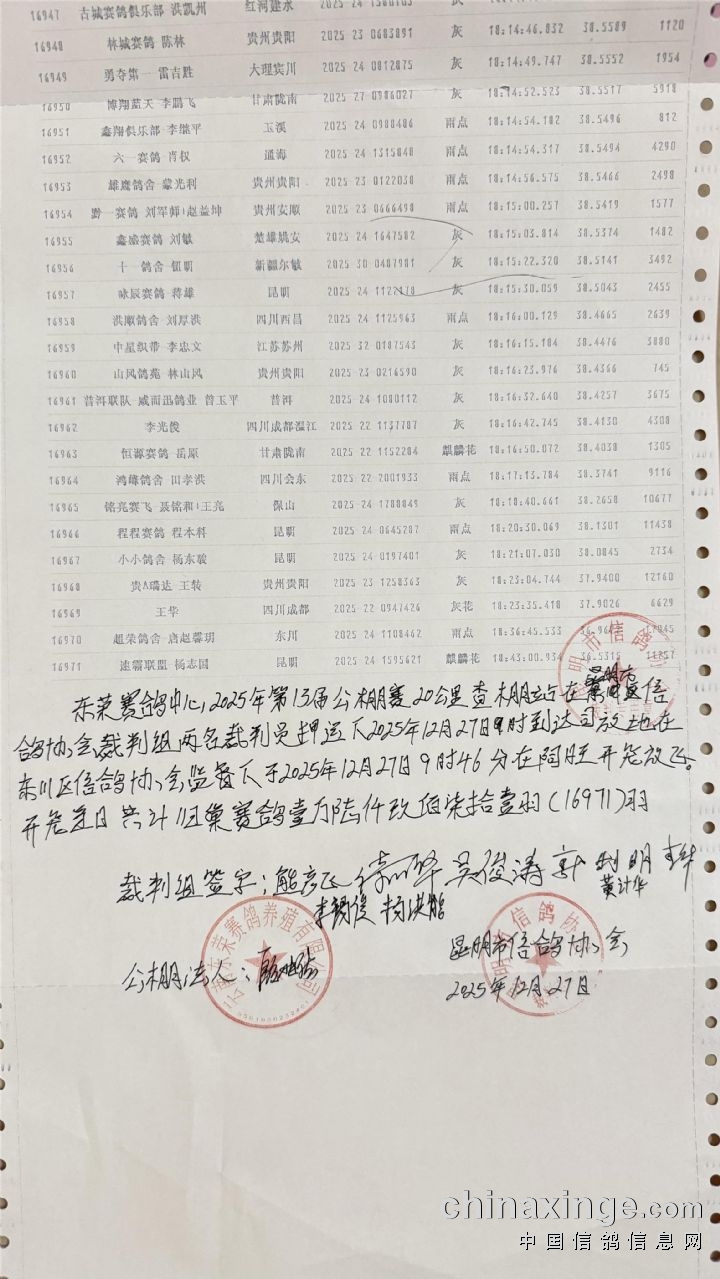 16947 古城赛鸽俱乐部 洪凯州 红河建水 2025 24 1580103 灰
16948 林城赛鸽 陈林 贵州贵阳 2025 23 0683891 灰 18:14:46.832 38.5589 1120
16949 勇夺第一 雷吉胜 大理宾川 2025 24 0812875 灰 18:14:49.747 38.5552 1954
16950 博翔蓝天 李鹏飞 甘肃陇南 2025 27 0986027 灰 18:14:52.523 38.5517 5918
16951 鑫翔俱乐部 李继平 玉溪 2025 24 0988486 雨点 18:14:54.182 38.5496 812
16952 六一赛鸽 肖权 通海 2025 24 1315848 雨点 18:14:54.317 38.5494 4290
16953 雄鹰鸽舍 蒙光利 贵州贵阳 2025 23 0122038 雨点 18:14:56.575 38.5466 2498
16954 黔一赛鸽 刘军师+赵益坤 贵州安顺 2025 23 0666498 雨点 18:15:00.257 38.5419 1577
16955 鑫盛赛鸽 刘敏 楚雄姚安 2025 24 1647582 灰 18:15:03.814 38.5374 1482
16956 十一鸽舍 钮明 新疆尔敏 2025 30 0487981 灰 18:15:22.320 38.5141 3492
16957 咏辰赛鸽 蒋雄 昆明 2025 24 1122178 灰 18:15:30.059 38.5043 2455
16958 洪顺鸽舍 刘厚洪 四川西昌 2025 24 1125963 雨点 18:16:00.129 38.4665 2639
16959 中星织带 李忠文 江苏苏州 2025 32 0187543 灰 18:16:15.184 38.4476 3880
16960 山风鸽苑 林山风 贵州贵阳 2025 23 0216590 灰 18:16:23.976 38.4366 745
16961 普洱联队 威而迅鸽业 曾玉平 普洱 2025 24 1080112 灰 18:16:32.640 38.4257 3675
16962 李光俊 四川成都温江 2025 22 1137787 灰 18:16:42.745 38.4130 4308
16963 恒源赛鸽 岳原 甘肃陇南 2025 22 1152284 麒麟花 18:16:50.072 38.4038 1305
16964 鸿峰鸽舍 田孝洪 四川会东 2025 22 2001933 雨点 18:17:13.784 38.3741 9116
16965 铭亮赛飞 聂铭和+王亮 保山 2025 24 1788849 灰 18:18:40.661 38.2658 10677
16966 程程赛鸽 程本科 昆明 2025 24 0645287 雨点 18:20:30.069 38.1301 11438
16967 小小鸽舍 杨东骏 昆明 2025 24 0197401 灰 18:21:07.030 38.0845 2734
16968 贵A瑞达 王转 贵州贵阳 2025 23 1258363 灰 18:23:04.744 37.9400 12160
16969 王华 四川成都 2025 22 0947426 灰花 18:23:35.418 37.9026 6629
16970 超荣鸽舍 唐赵馨玥 东川 2025 24 1108462 雨点 18:36:45.533
16971 速霸联盟 杨志国 昆明 2025 24 1595621 麒麟花 18:43:00.934 36.5315 11257
东荣赛鸽中心,2025年第13届公棚赛20公里查棚站在昆明市信
鸽协会裁判组两名裁判员押运下2025年12月27日9时到达司放地在
东川区信鸽协会监督下于2025年12月27日9时46分在阿旺开笼放飞。
开笼是日共计归巢赛鸽壹万陆仟玖佰柒拾壹羽(16971)羽
裁判组签字: 熊彦飞 吴俊涛 郭利明
黄计华
公棚法人:
昆明市信鸽协会
2025年12月27日
云南东荣赛鸽养殖有限公司
chinaxinge.com
中国信鸽信息网